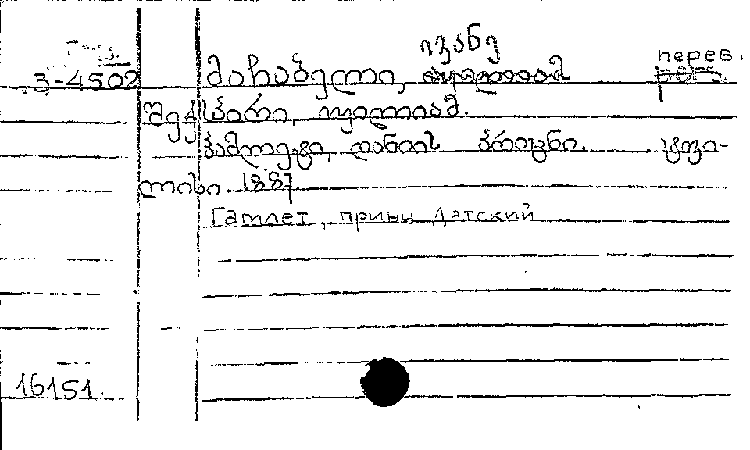 ივანე
3-4502 მაჩაბელი, უილიამ перев.
შექსპირი, უილიამ.
ჰამლეტი, დანიის პრინცი. ტფი-
ლისი. 1887
Гамлет, принц Датский
16151.